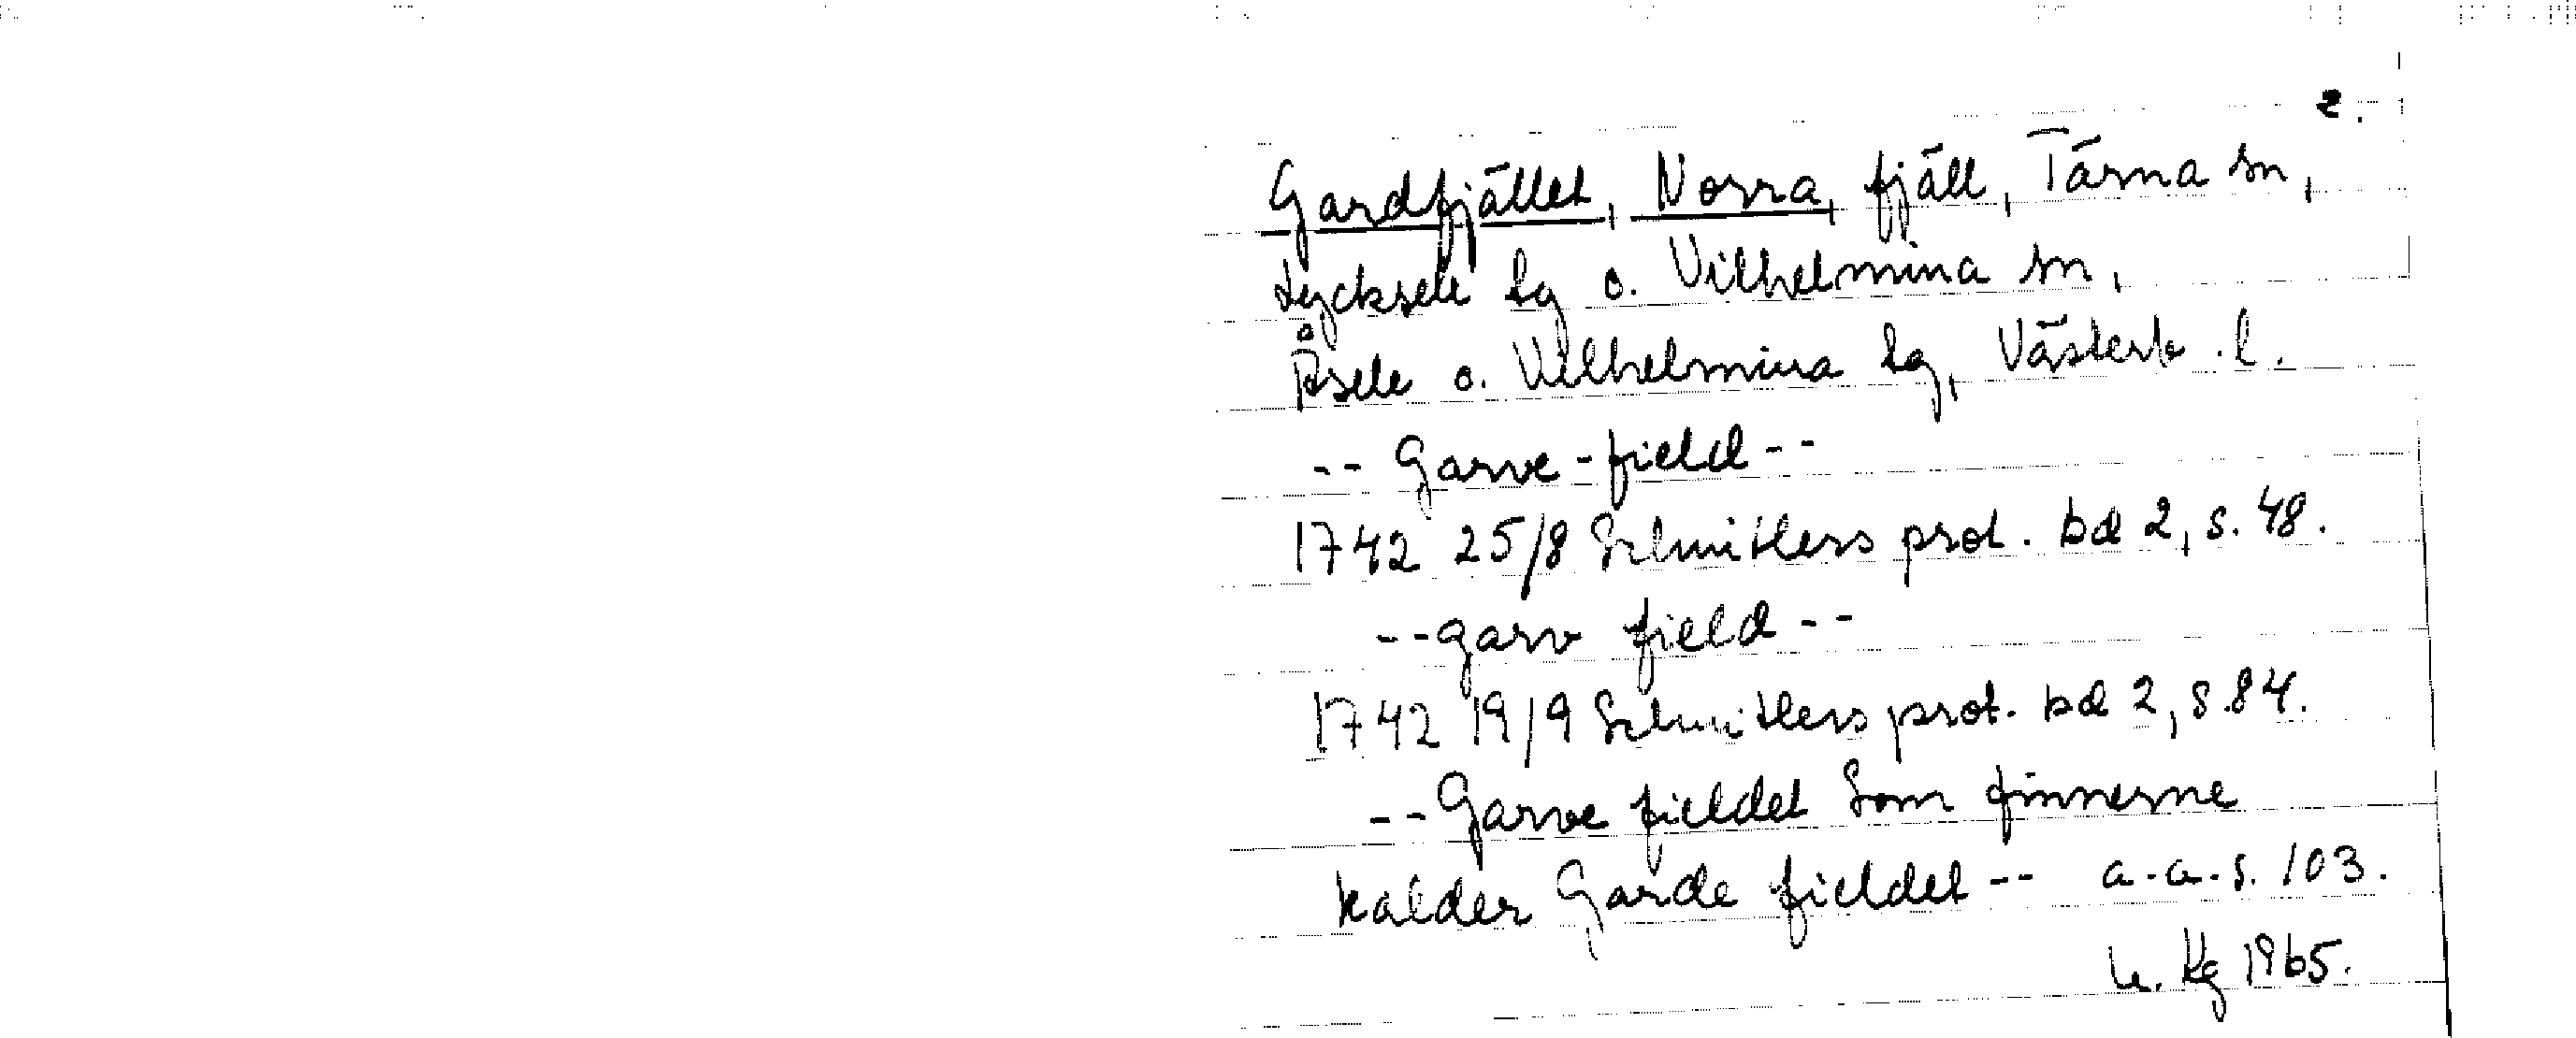 2.
Gardfjället, Norra, fjäll, Tärna sn,
Lycksele lg o. Vilhelmina sn,
Åsele o. Vilhelmina lg, Västerb. l.
-- Garve-field --
1742 25/8 Schnitlers prot. bd 2, s. 48.
-- garv field --
1742 19/9 Schnitlers prot. bd 2, s. 84.
-- Garve fieldet Som finnerne
kalder Garde fieldet -- a.a.s. 103.
Kg 1965.